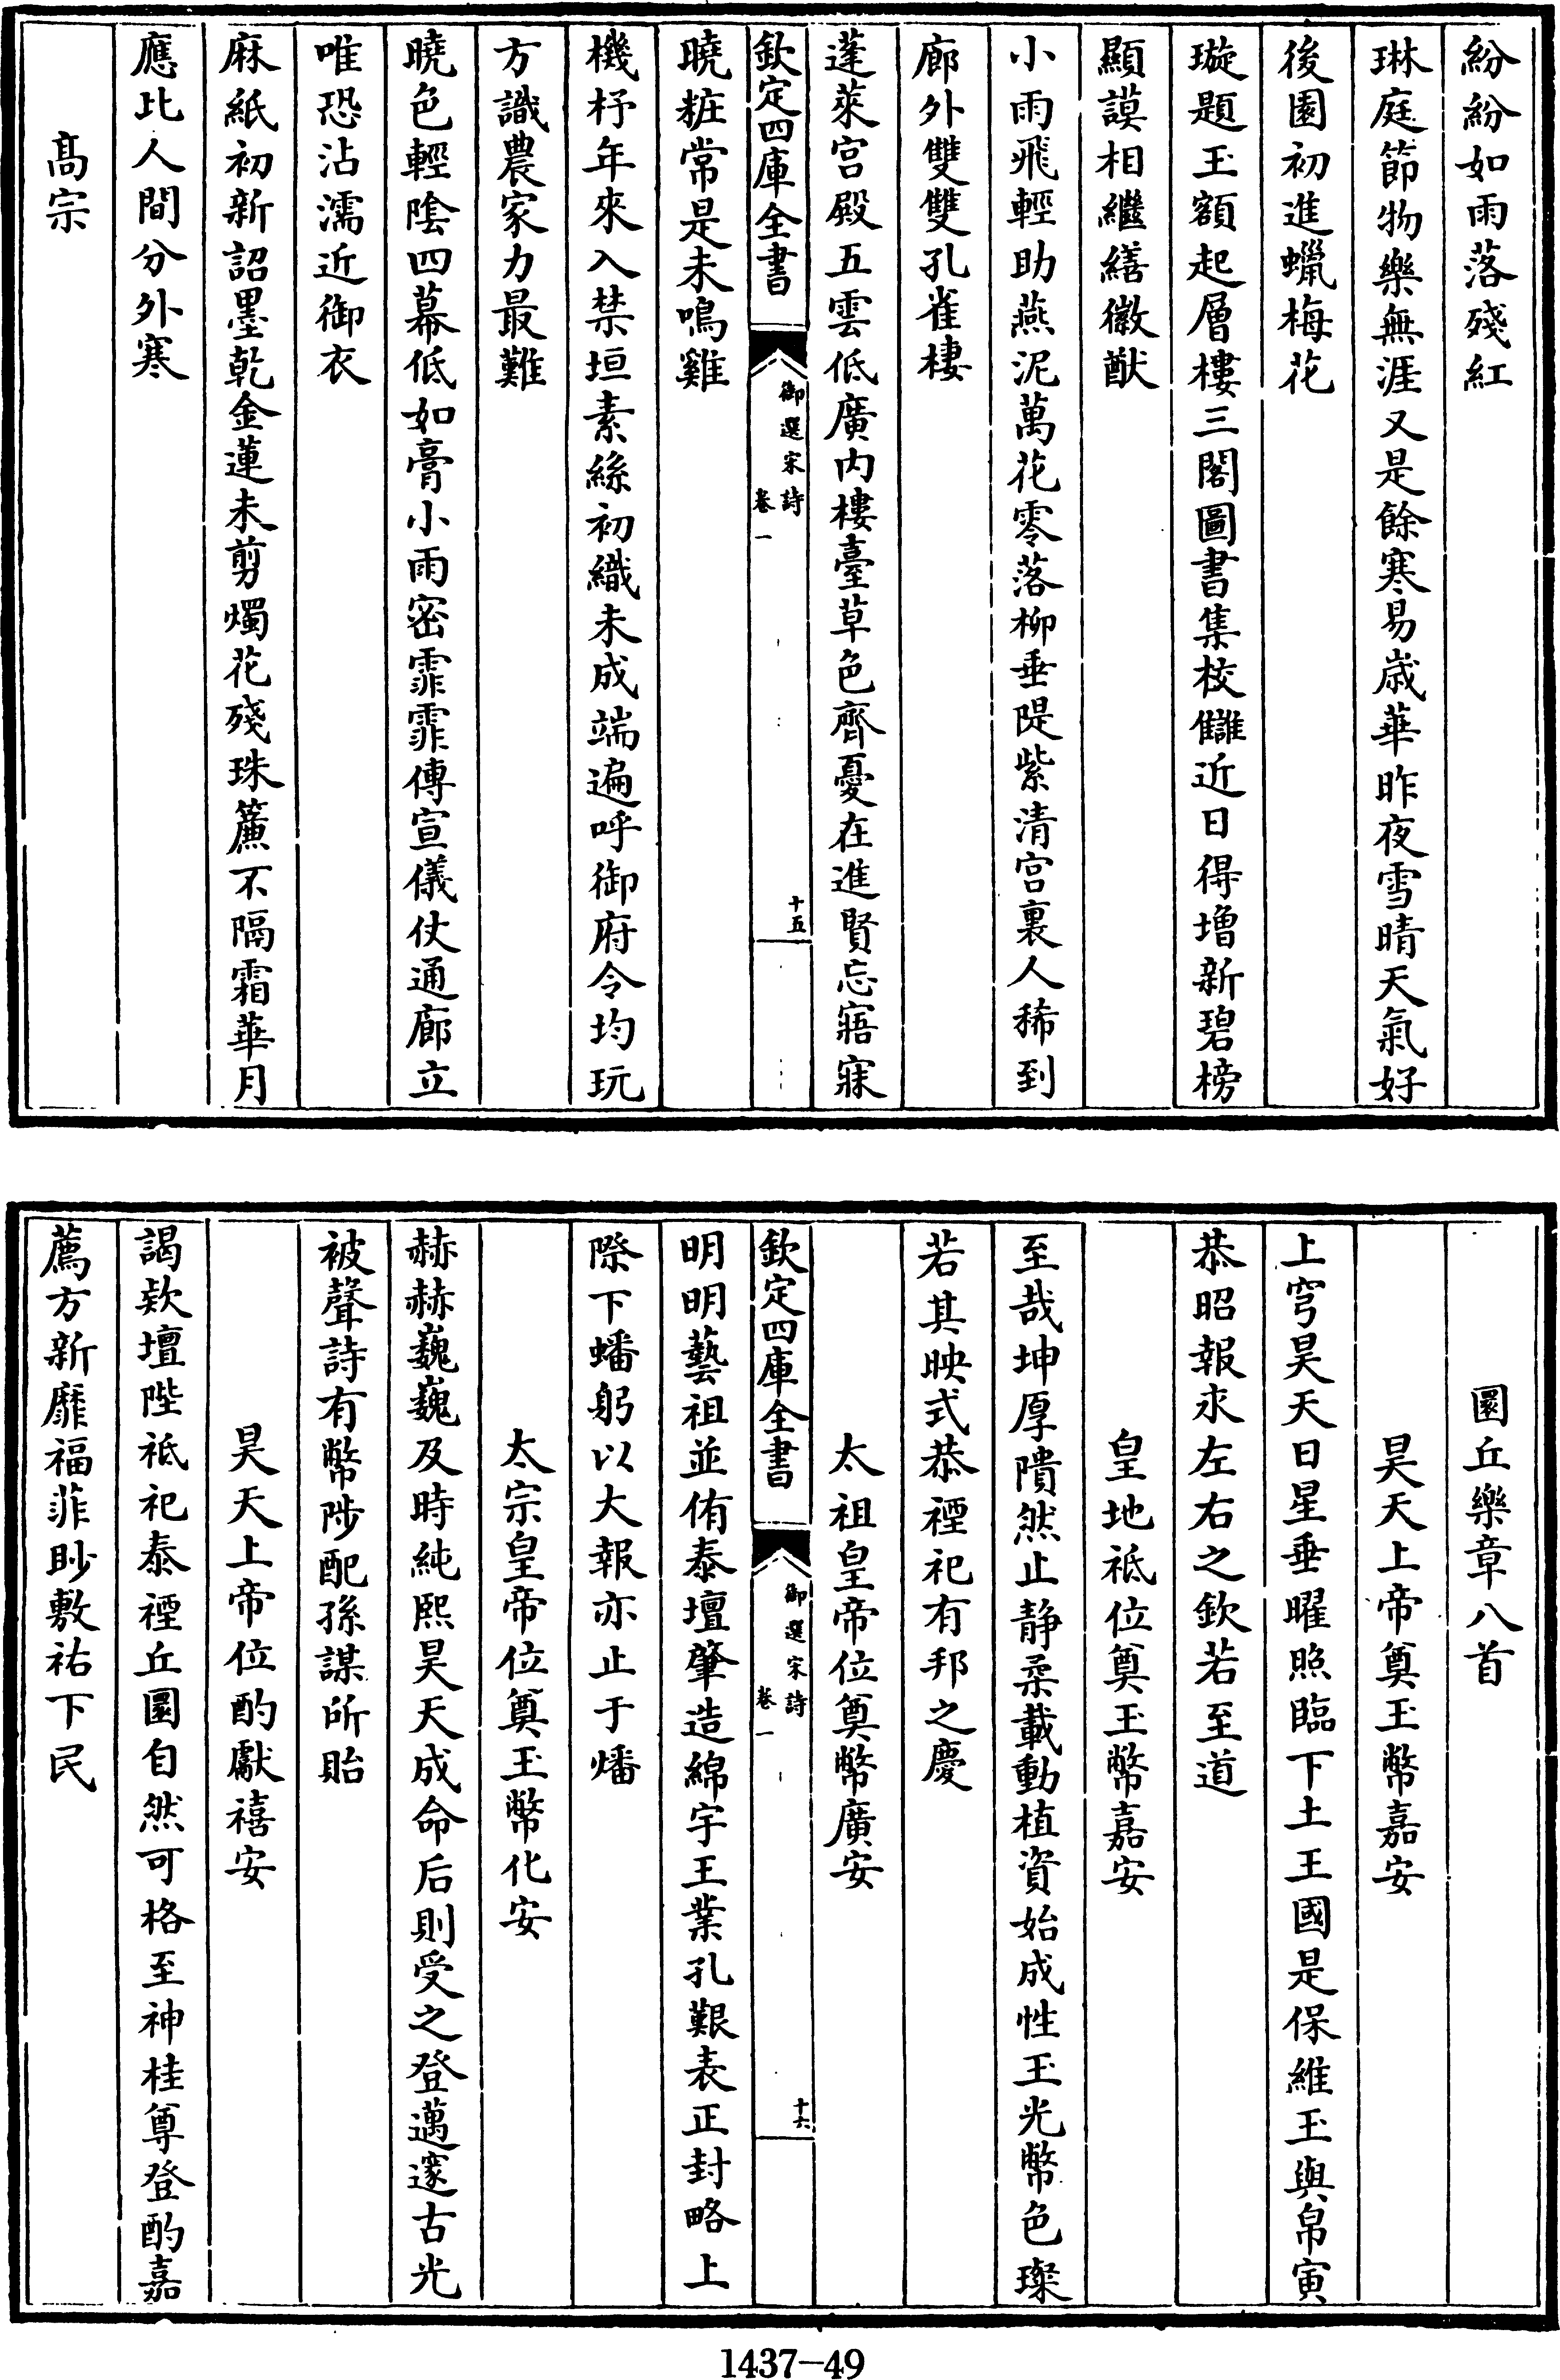 紛紛如雨落殘紅
琳庭節物樂無涯又是餘寒易歳華昨夜雪晴天氣好
後園初進蠟梅花
璇題玉額起層樓三閣圖書集校讎近日得增新碧榜
顯謨相繼繕徽猷
小雨飛輕助燕泥萬花零落柳垂隄紫清宫裏人稀到
廊外雙雙孔雀棲
蓬萊宫殿五雲低廣内樓臺草色齊憂在進賢忘寤寐
欽定四庫全書
御選宋詩
卷一
十五
曉粧常是未鳴雞
機杼年來入禁垣素絲初織未成端遍呼御府令均玩
方識農家力最難
曉色輕陰四幕低如膏小雨密霏霏傳宣儀仗通廊立
唯恐沾濡近御衣
麻紙初新詔墨乾金蓮未剪燭花殘珠簾不隔霜華月
應比人間分外寒
髙宗
圜丘樂章八首
昊天上帝奠玉幣嘉安
上穹昊天日星垂曜照臨下土王國是保維玉與帛寅
恭昭報求左右之欽若至道
皇地祇位奠玉幣嘉安
至哉坤厚隤然止静柔載動植資始成性玉光幣色璨
若其映式恭禋祀有邦之慶
太祖皇帝位奠幣廣安
欽定四庫全書
御選宋詩
卷一
十六
明明藝祖並侑泰壇肇造綿宇王業孔艱表正封略上
際下蟠躬以大報亦止于燔
太宗皇帝位奠玉幣化安
赫赫巍巍及時純熙昊天成命后則受之登邁邃古光
被聲詩有幣陟配孫謀所貽
昊天上帝位酌獻禧安
謁欵壇陛祇祀泰禋丘圜自然可格至神桂尊登酌嘉
薦方新靡福菲眇敷祐下民
1437—49